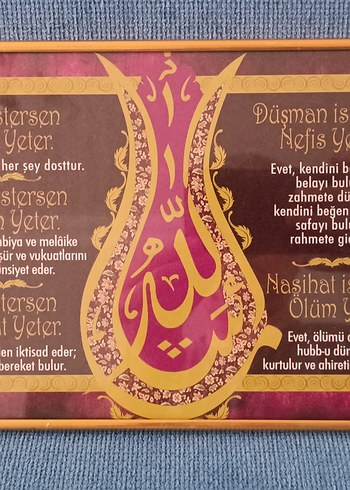 stersen
Yeter.
her şey dosttur.
stersen
n Yeter.
biya ve melâike
şür ve vukuatlarını
ünsiyet eder.
stersen
t Yeter.
en iktisad eder;
bereket bulur.
الله
Düşman is
Nefis Ye
Evet, kendini b
belayı bulu
zahmete dü
kendini beğenn
safayı bulu
rahmete gi
Nasihat i
Ölüm Y
Evet, ölümü d
hubb-u dü
kurtulur ve ahireti